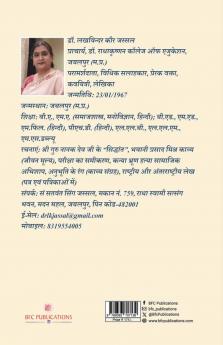 डॉ. लखविन्दर कौर जस्सल
प्राचार्य, डॉ. राधाकृष्णन कॉलेज ऑफ एजुकेशन,
जबलपुर (म.प्र.)
परामर्शदाता, विधिक सलाहकार, प्रेरक वक्ता,
कवयित्री, लेखिका
जन्मतिथि: 23/01/1967
जन्मस्थान: जबलपुर (म.प्र.)
शिक्षा: बी.ए., एम.ए. (समाजशास्त्र, मनोविज्ञान, हिन्दी); बी.एड., एम.एड.,
एम.फिल. (हिन्दी), पीएच.डी. (हिन्दी), एल.एल.बी., एल.एल.एम.,
एम.एस.डब्ल्यू
रचनाएं: श्री गुरु नानक देव जी के "सिद्धांत", भवानी प्रसाद मिश्र काव्य
(जीवन मूल्य), परीक्षा का समीकरण, कन्या भ्रूण हत्या सामाजिक
अभिशाप, अनुभूति के रंग (काव्य संग्रह), राष्ट्रीय और अंतरराष्ट्रीय लेख
(पत्र एवं पत्रिकाओं में)
संपर्क: सं सतवंत सिंग जस्सल, मकान नं. 759, राधा स्वामी सत्संग
भवन, मदन महल, जबलपुर, पिन कोड-482001
ई-मेल: drlkjassal@gmail.com
मोबाइल: 8319554005
BFC PUBLICATIONS
BFC PUBLICATIONS